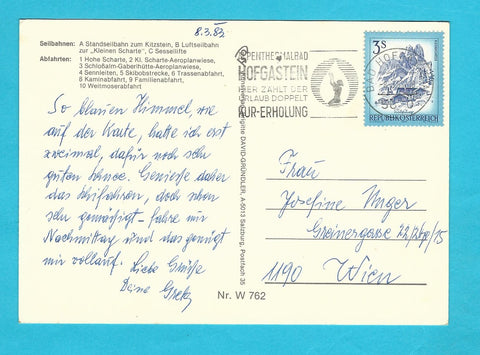 8.3.83
Seilbahnen: A Standseilbahn zum Kitzstein, B Luftseilbahn
zur „Kleinen Scharte”, C Sessellifte
Abfahrten: 1 Hohe Scharte, 2 Kl. Scharte-Aeroplanwiese,
3 Schloßalm-Gaberlhütte-Aeroplanwiese,
4 Sennleiten, 5 Skibobstrecke, 6 Trassenabfahrt,
8 Kaminabfahrt, 9 Familienabfahrt,
10 Weitmoserabfahrt
So blauen Himmel, wie
auf der Karte, hatte ich erst
zweimal, dafür noch sehr
guten Schnee. Genieße daher
das Skifahren, doch schon
sehr gemäßigt – fahre nur
Nachmittag und das genügt
mir vollauf. Liebe Grüße
Deine Gretl
DAVID-GRÜNDLER, A-5013 Salzburg, Postfach 35
Nr. W 762
THERMALBAD
HOFGASTEIN
HIER ZÄHLT DER
URLAUB DOPPELT
KUR-ERHOLUNG
BAD HOF
3S
REPUBLIK ÖSTERREICH
Frau
Josefine Unger
Greinergasse 22/2stg/15
1190 Wien